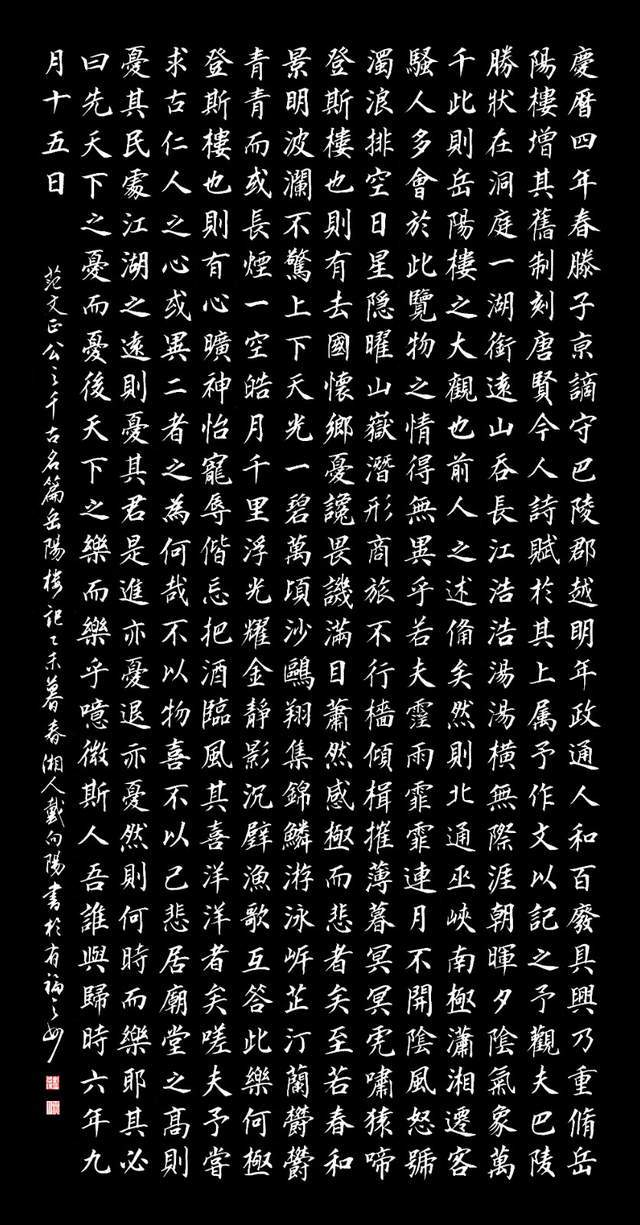 慶暦四年春滕子京謫守巴陵郡越明年政通人和百廢具興乃重脩岳
陽樓增其舊制刻唐賢今人詩賦於其上属予作文以記之予觀夫巴陵
勝狀在洞庭一湖銜遠山吞長江浩浩湯湯橫無際涯朝暉夕陰氣象萬
千此則岳陽樓之大觀也前人之述俻矣然則北通巫峽南極瀟湘遷客
騷人多會於此覽物之情得無異乎若夫霪雨霏霏連月不開陰風怒號
濁浪排空日星隐曜山嶽潛形商旅不行檣傾楫摧薄暮冥冥虎嘯猿啼
登斯樓也則有去國懷鄉憂讒畏譏滿目蕭然感極而悲者矣至若春和
景明波瀾不驚上下天光一碧萬頃沙鷗翔集錦鱗游泳岸芷汀蘭鬱鬱
青青而或長煙一空皓月千里浮光耀金靜影沉璧漁歌互答此樂何極
登斯樓也則有心曠神怡寵辱偕忘把酒臨風其喜洋洋者矣嗟夫予嘗
求古仁人之心或異二者之為何哉不以物喜不以己悲居廟堂之高則
憂其民處江湖之遠則憂其君是進亦憂退亦憂然則何時而樂耶其必
曰先天下之憂而憂後天下之樂而樂乎噫微斯人吾誰與歸時六年九
月十五日
范文正公之千古名篇岳陽樓記乙未暮春湘人戴向陽書於有福之州